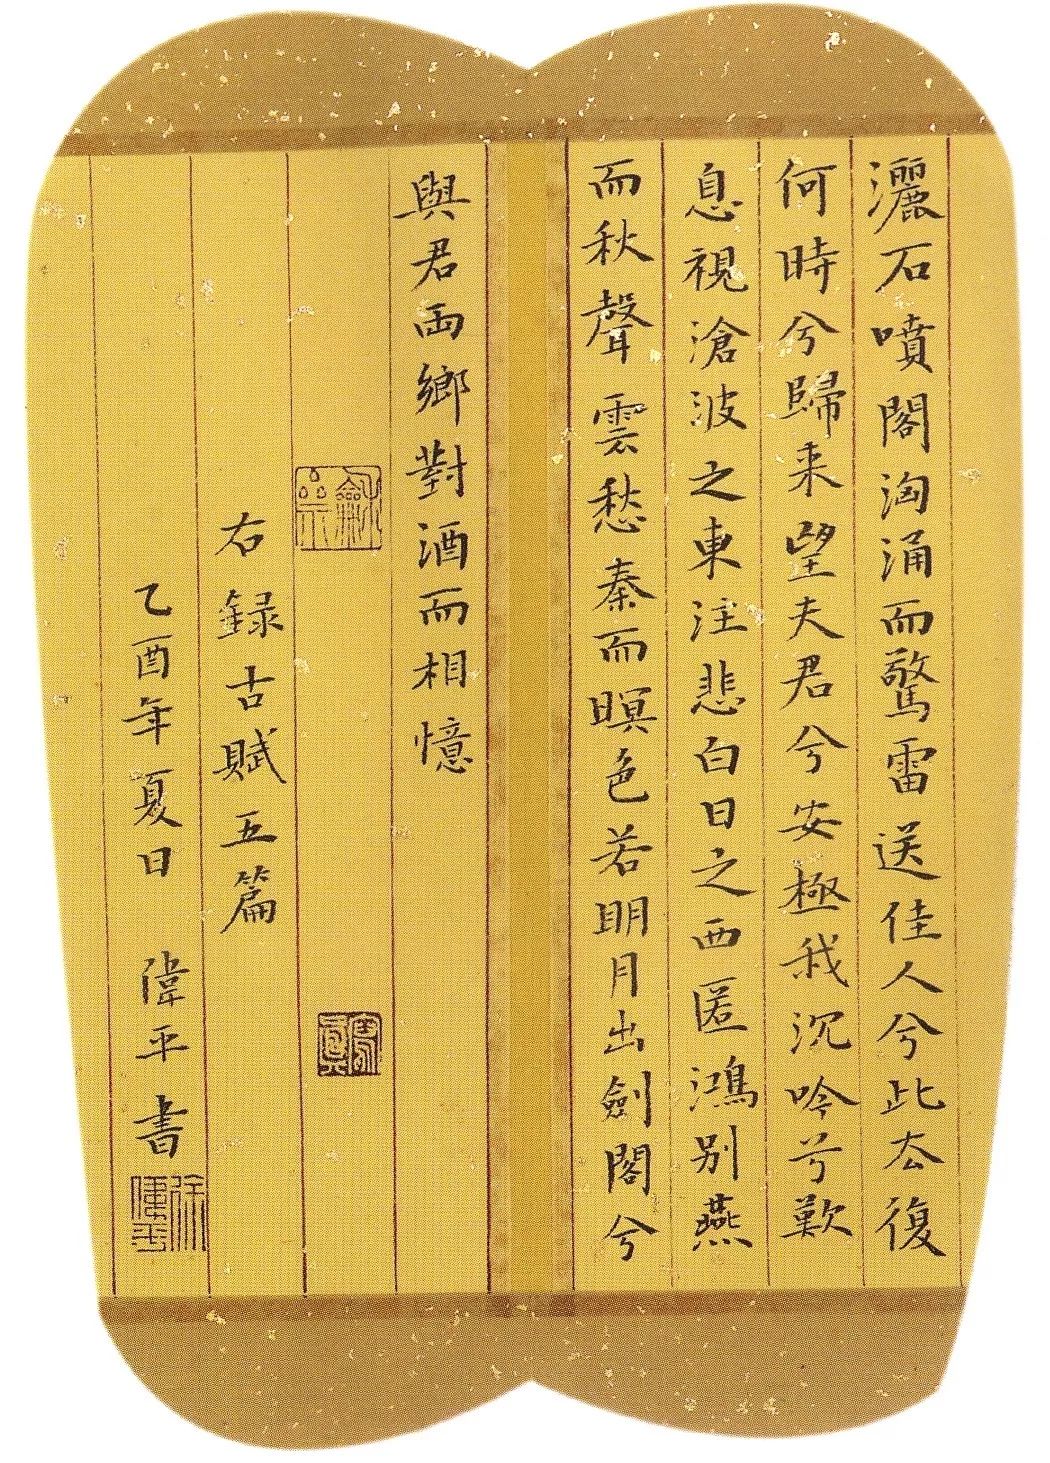 灑石噴閣洶涌而驚雷送佳人兮此去復
何時兮歸来望夫君兮安極我沉吟兮歎
息視滄波之東注悲白日之西匿鴻別燕
而秋聲雲愁秦而暝色若明月出劍閣兮
與君兩鄉對酒而相憶
右録古賦五篇
乙酉年夏日 偉平書
徐偉平